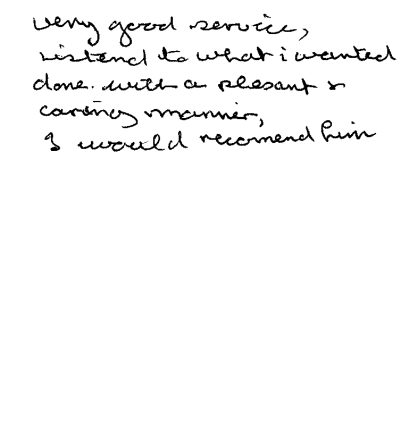 very good service,
listend to what i wanted
done. with a plesant &
caring manner,
I would recomend him